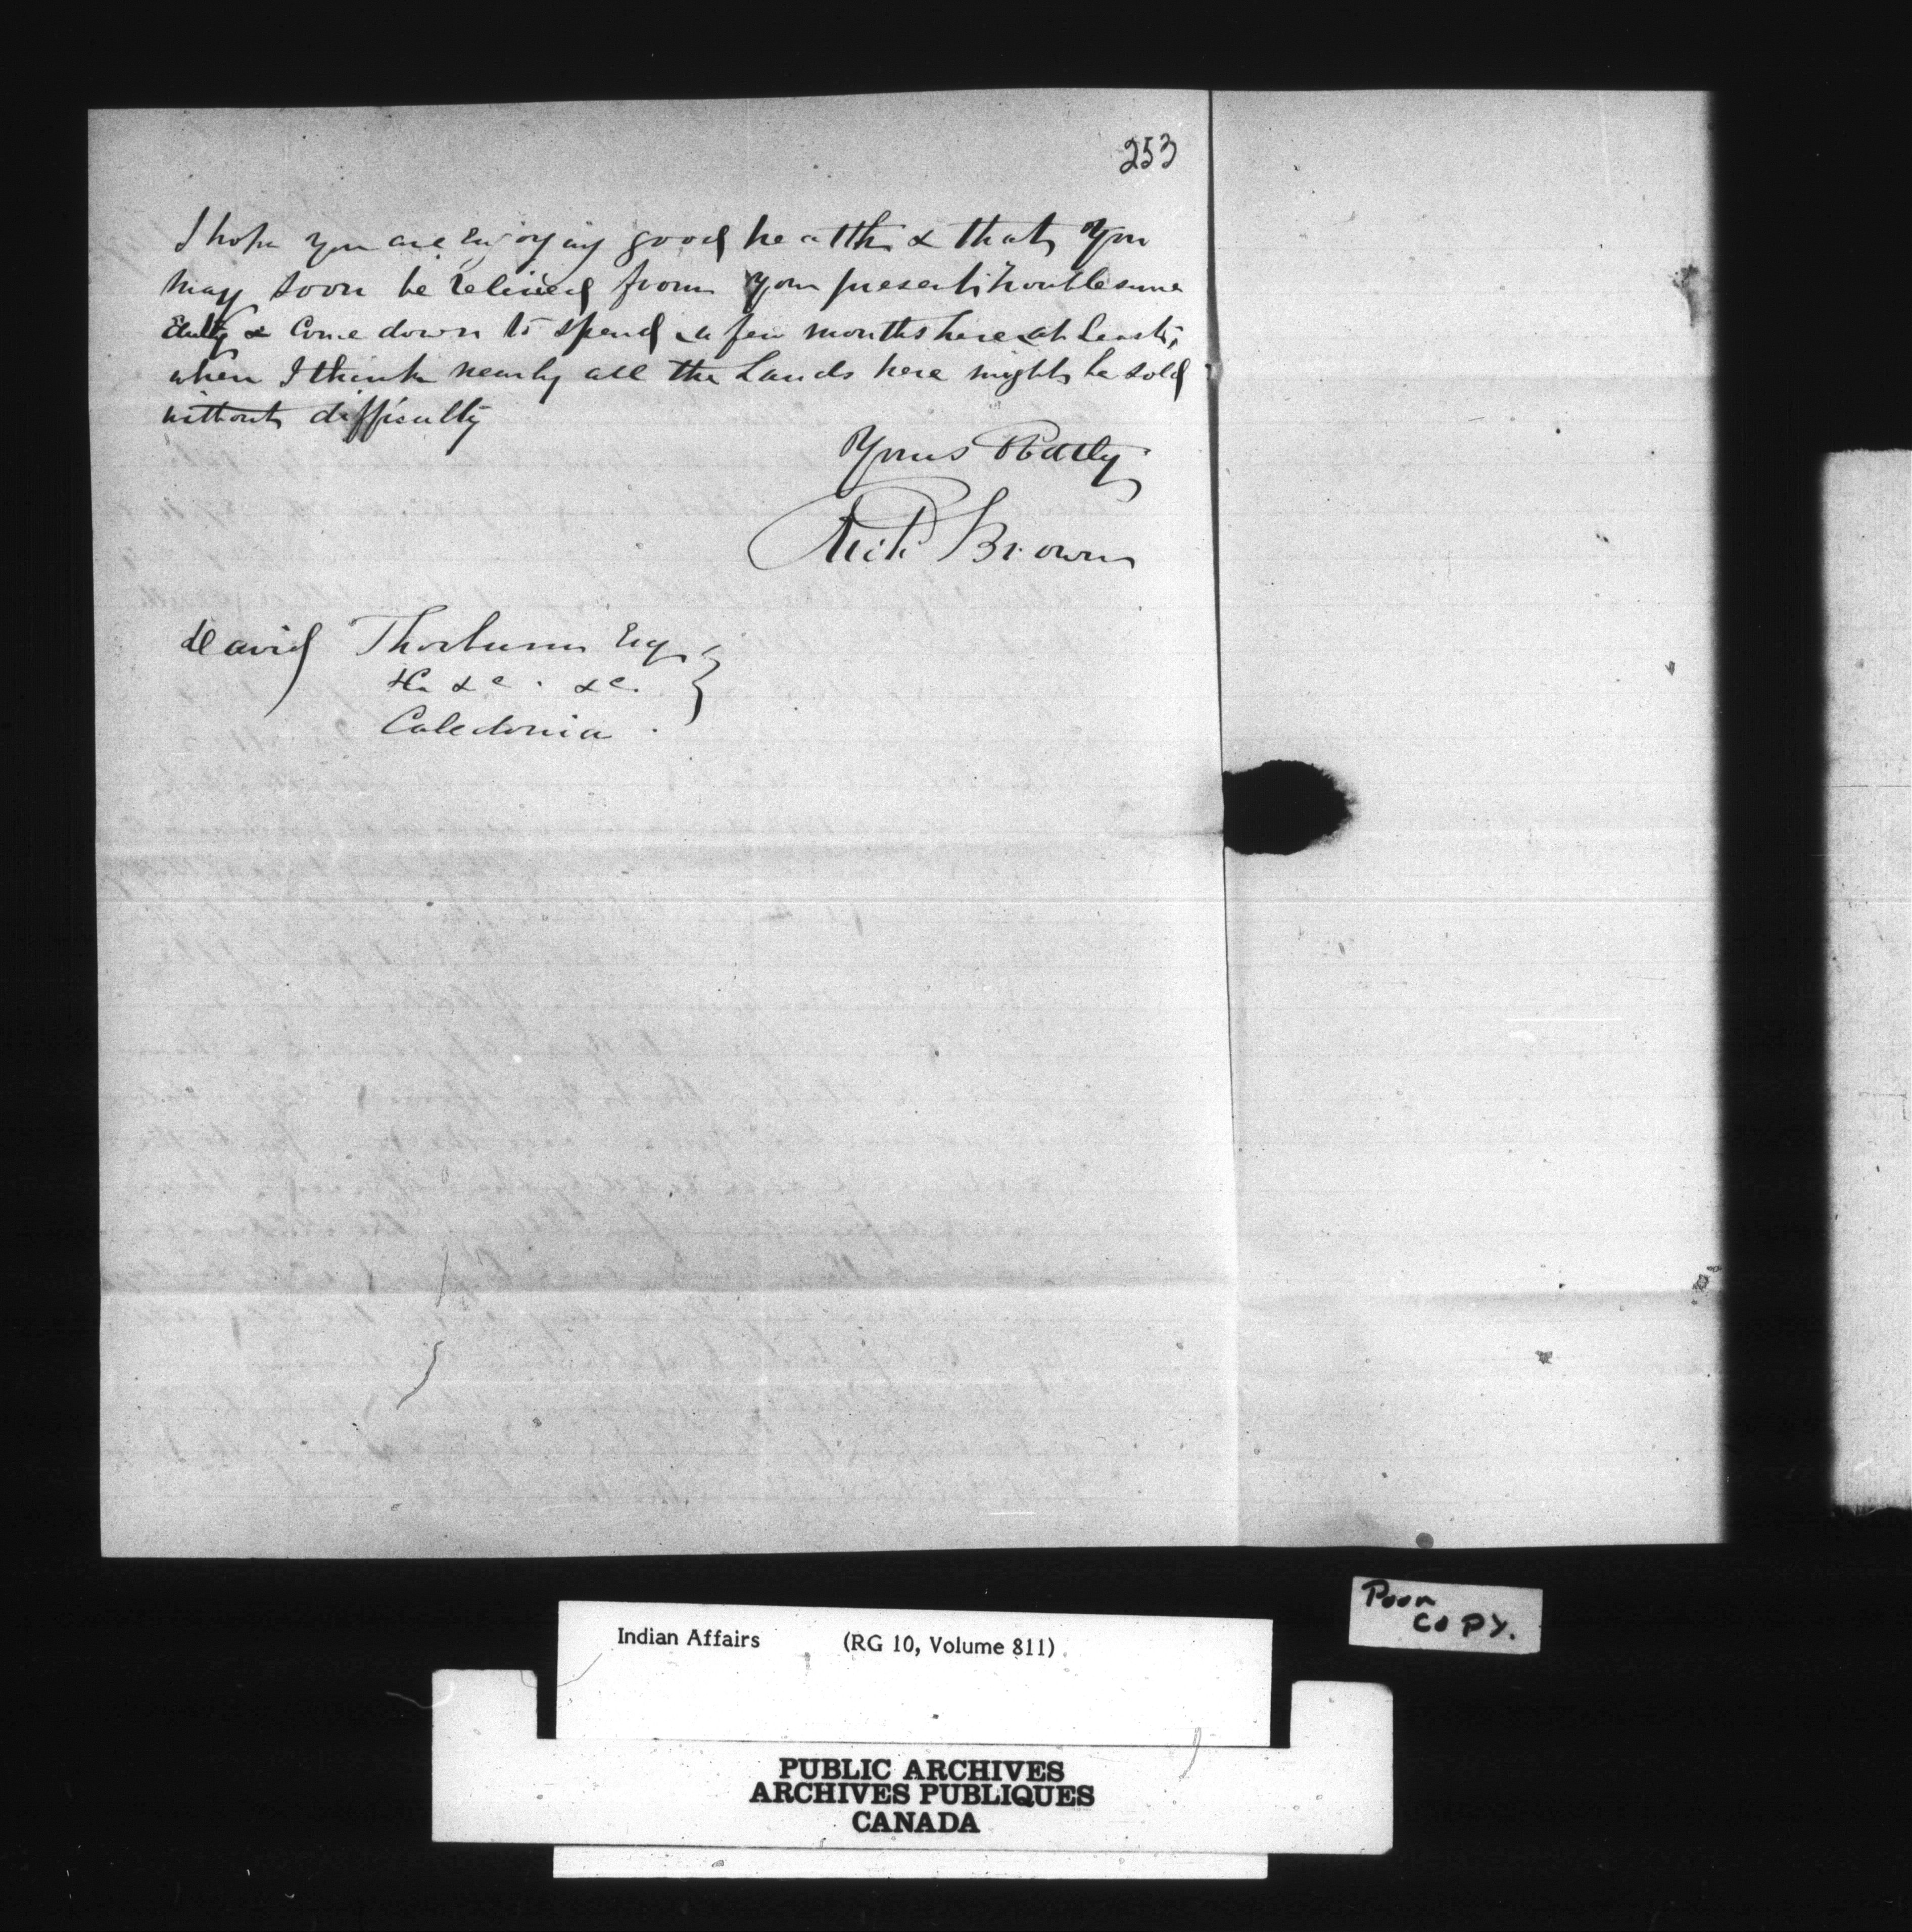 253
I hope you are enjoying good health & that you
may soon be relieved from your present troublesome
duty & come down to spend a few months here at least;
when I think nearly all the Lands here might be sold
without difficulty
Yours
Brown
David Thorburn Esq
&c. &c.
Caledonia
Poor
COPY.
Indian Affairs (RG 10, Volume 811)
PUBLIC ARCHIVES
ARCHIVES PUBLIQUES
CANADA